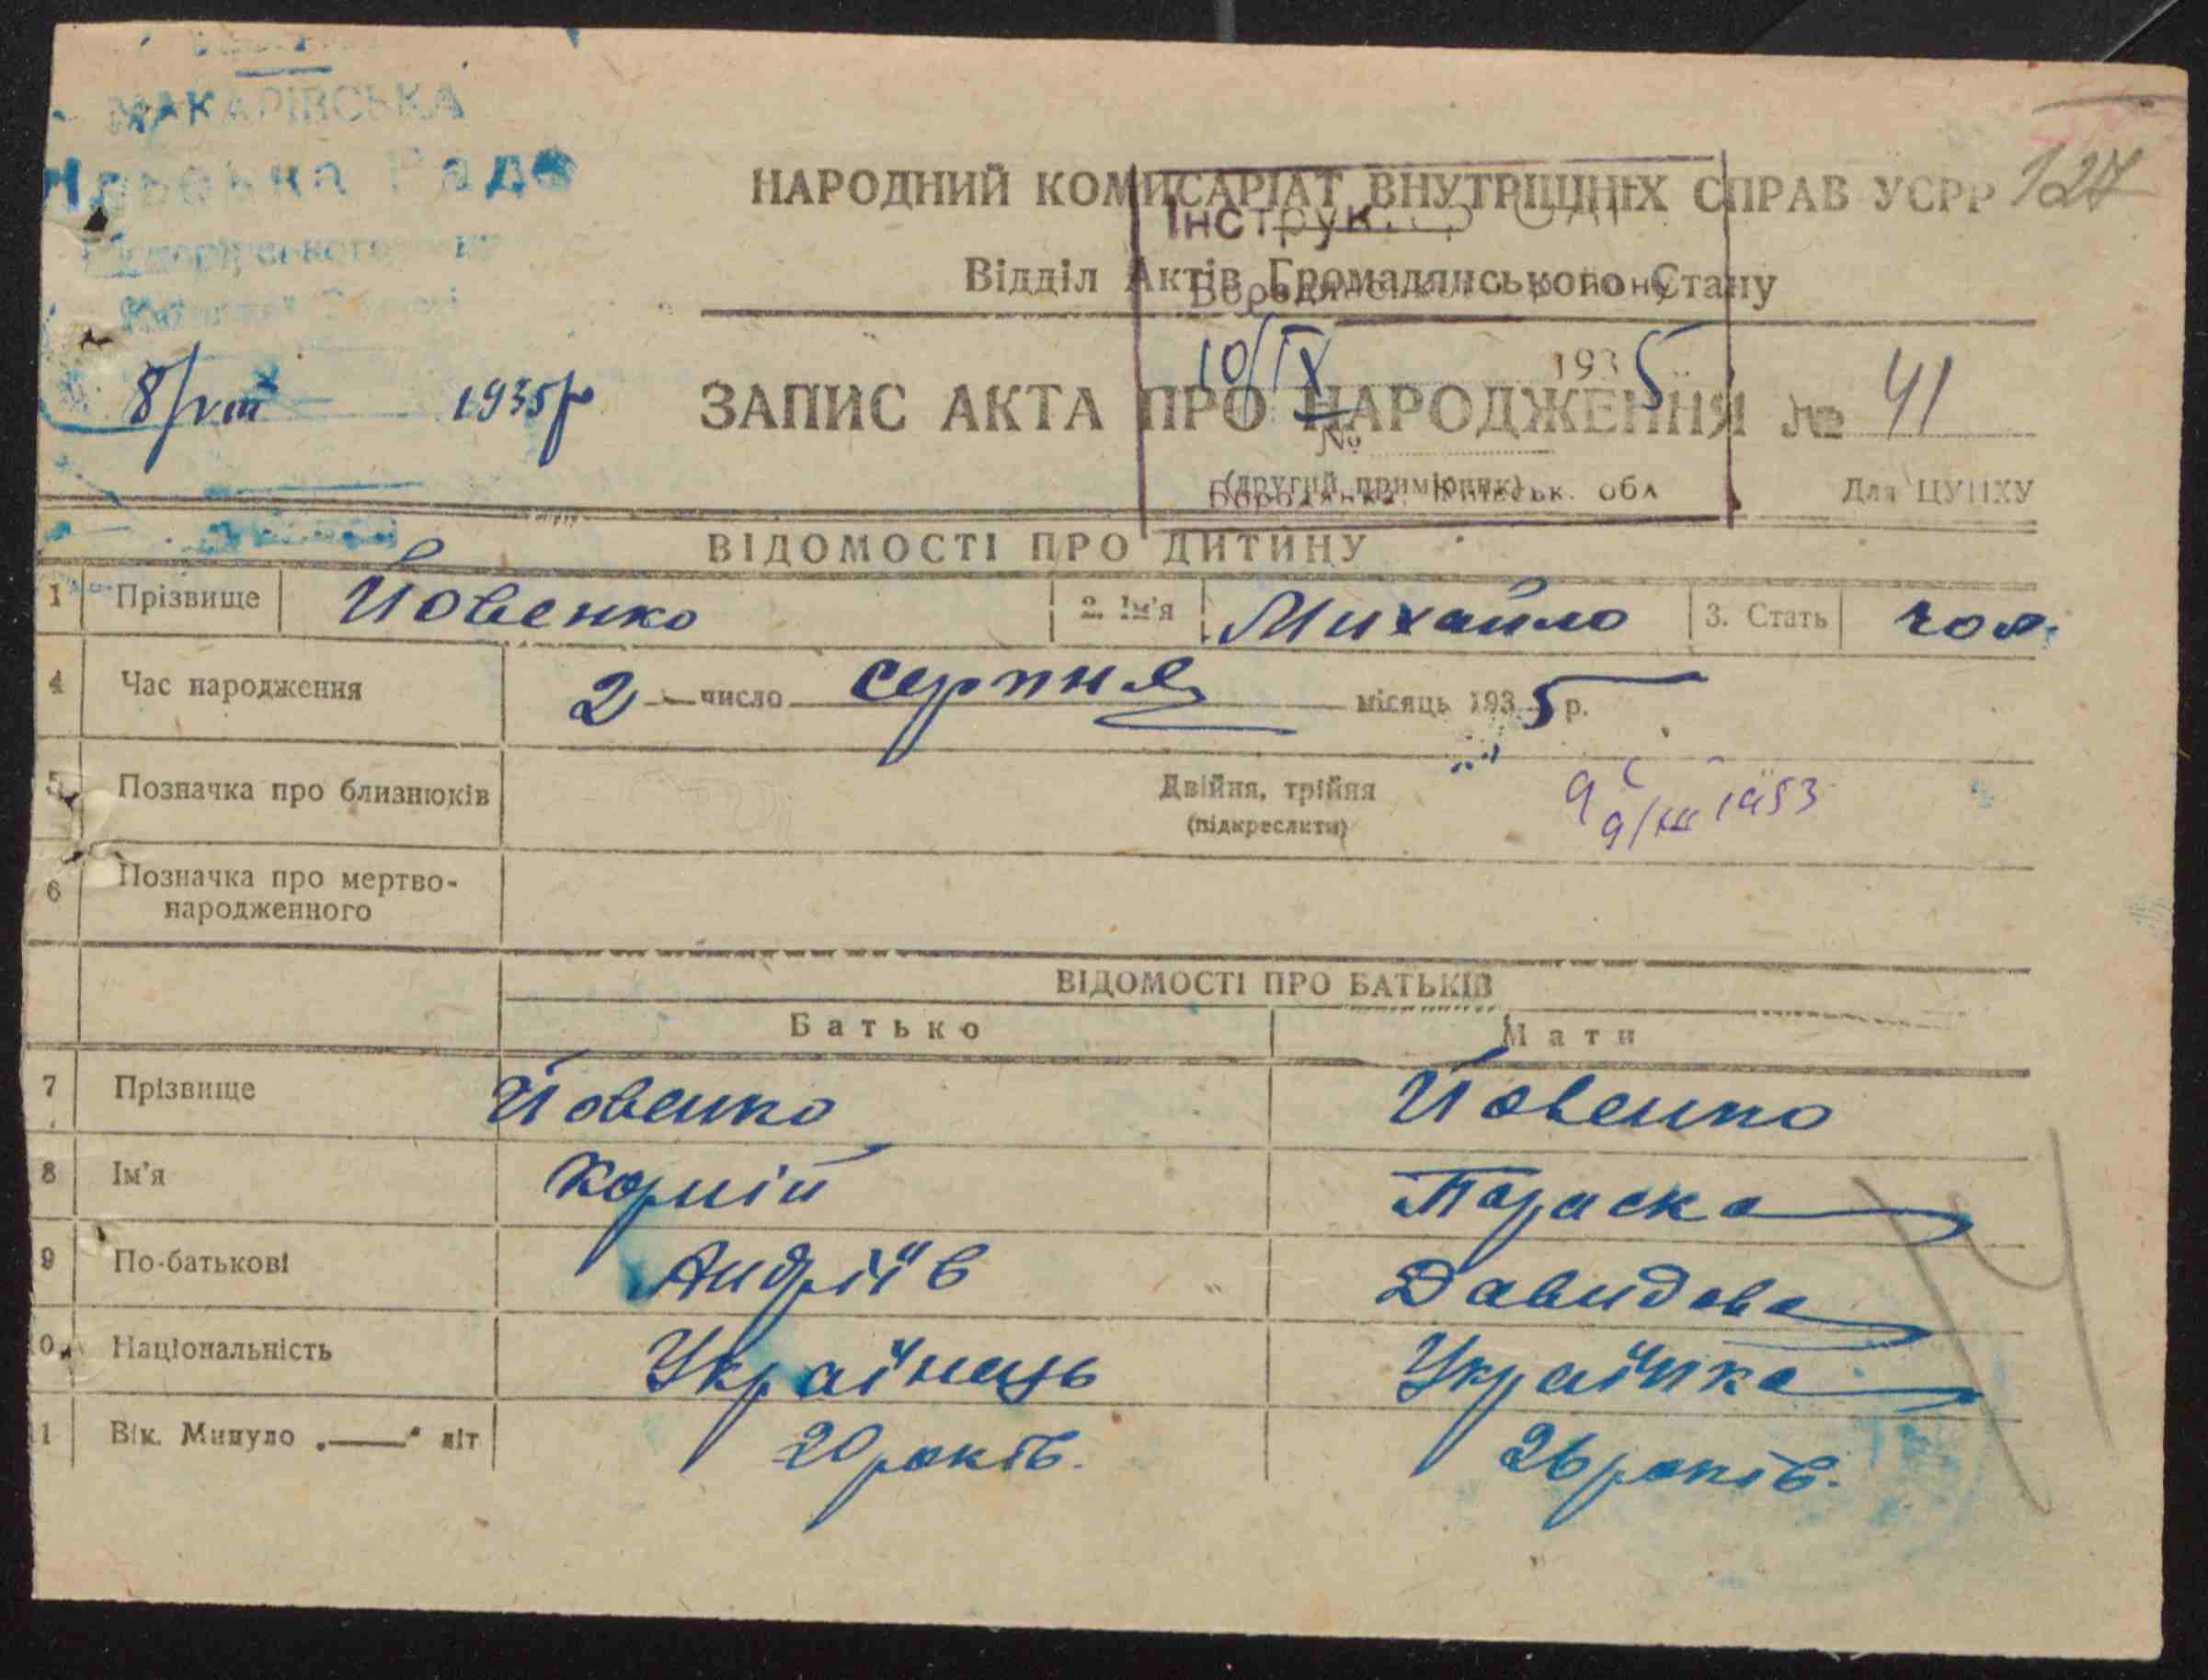 МАКАРІВСЬКА
Рада
8/VIII 1935р
127
НАРОДНИЙ КОМІСАРІАТ ВНУТРІШНІХ СПРАВ УСРР
Інструк.
Відділ Актів Громадянського Стану
Бородянського району
10/IX 1935
ЗАПИС АКТА ПРО НАРОДЖЕННЯ № 41
№
(другий примірник)
Бородянка, Київськ. обл
Для ЦУНХУ
ВІДОМОСТІ ПРО ДИТИНУ
1 Прізвище Йовенко 2. Ім'я Михайло 3. Стать чол.
4 Час народження 2 число серпня місяць 1935 р.
5 Позначка про близнюків Двійня, трійня
(підкреслити)
9/III 1953
6 Позначка про мертво-
народженного
ВІДОМОСТІ ПРО БАТЬКІВ
Батько Мати
7 Прізвище Йовенко Йовенко
8 Ім'я Корній Параска
9 По-батькові Андріїв Давидова
10 Національність Українець Українка
11 Вік. Минуло „—“ літ 20 років. 26 років.